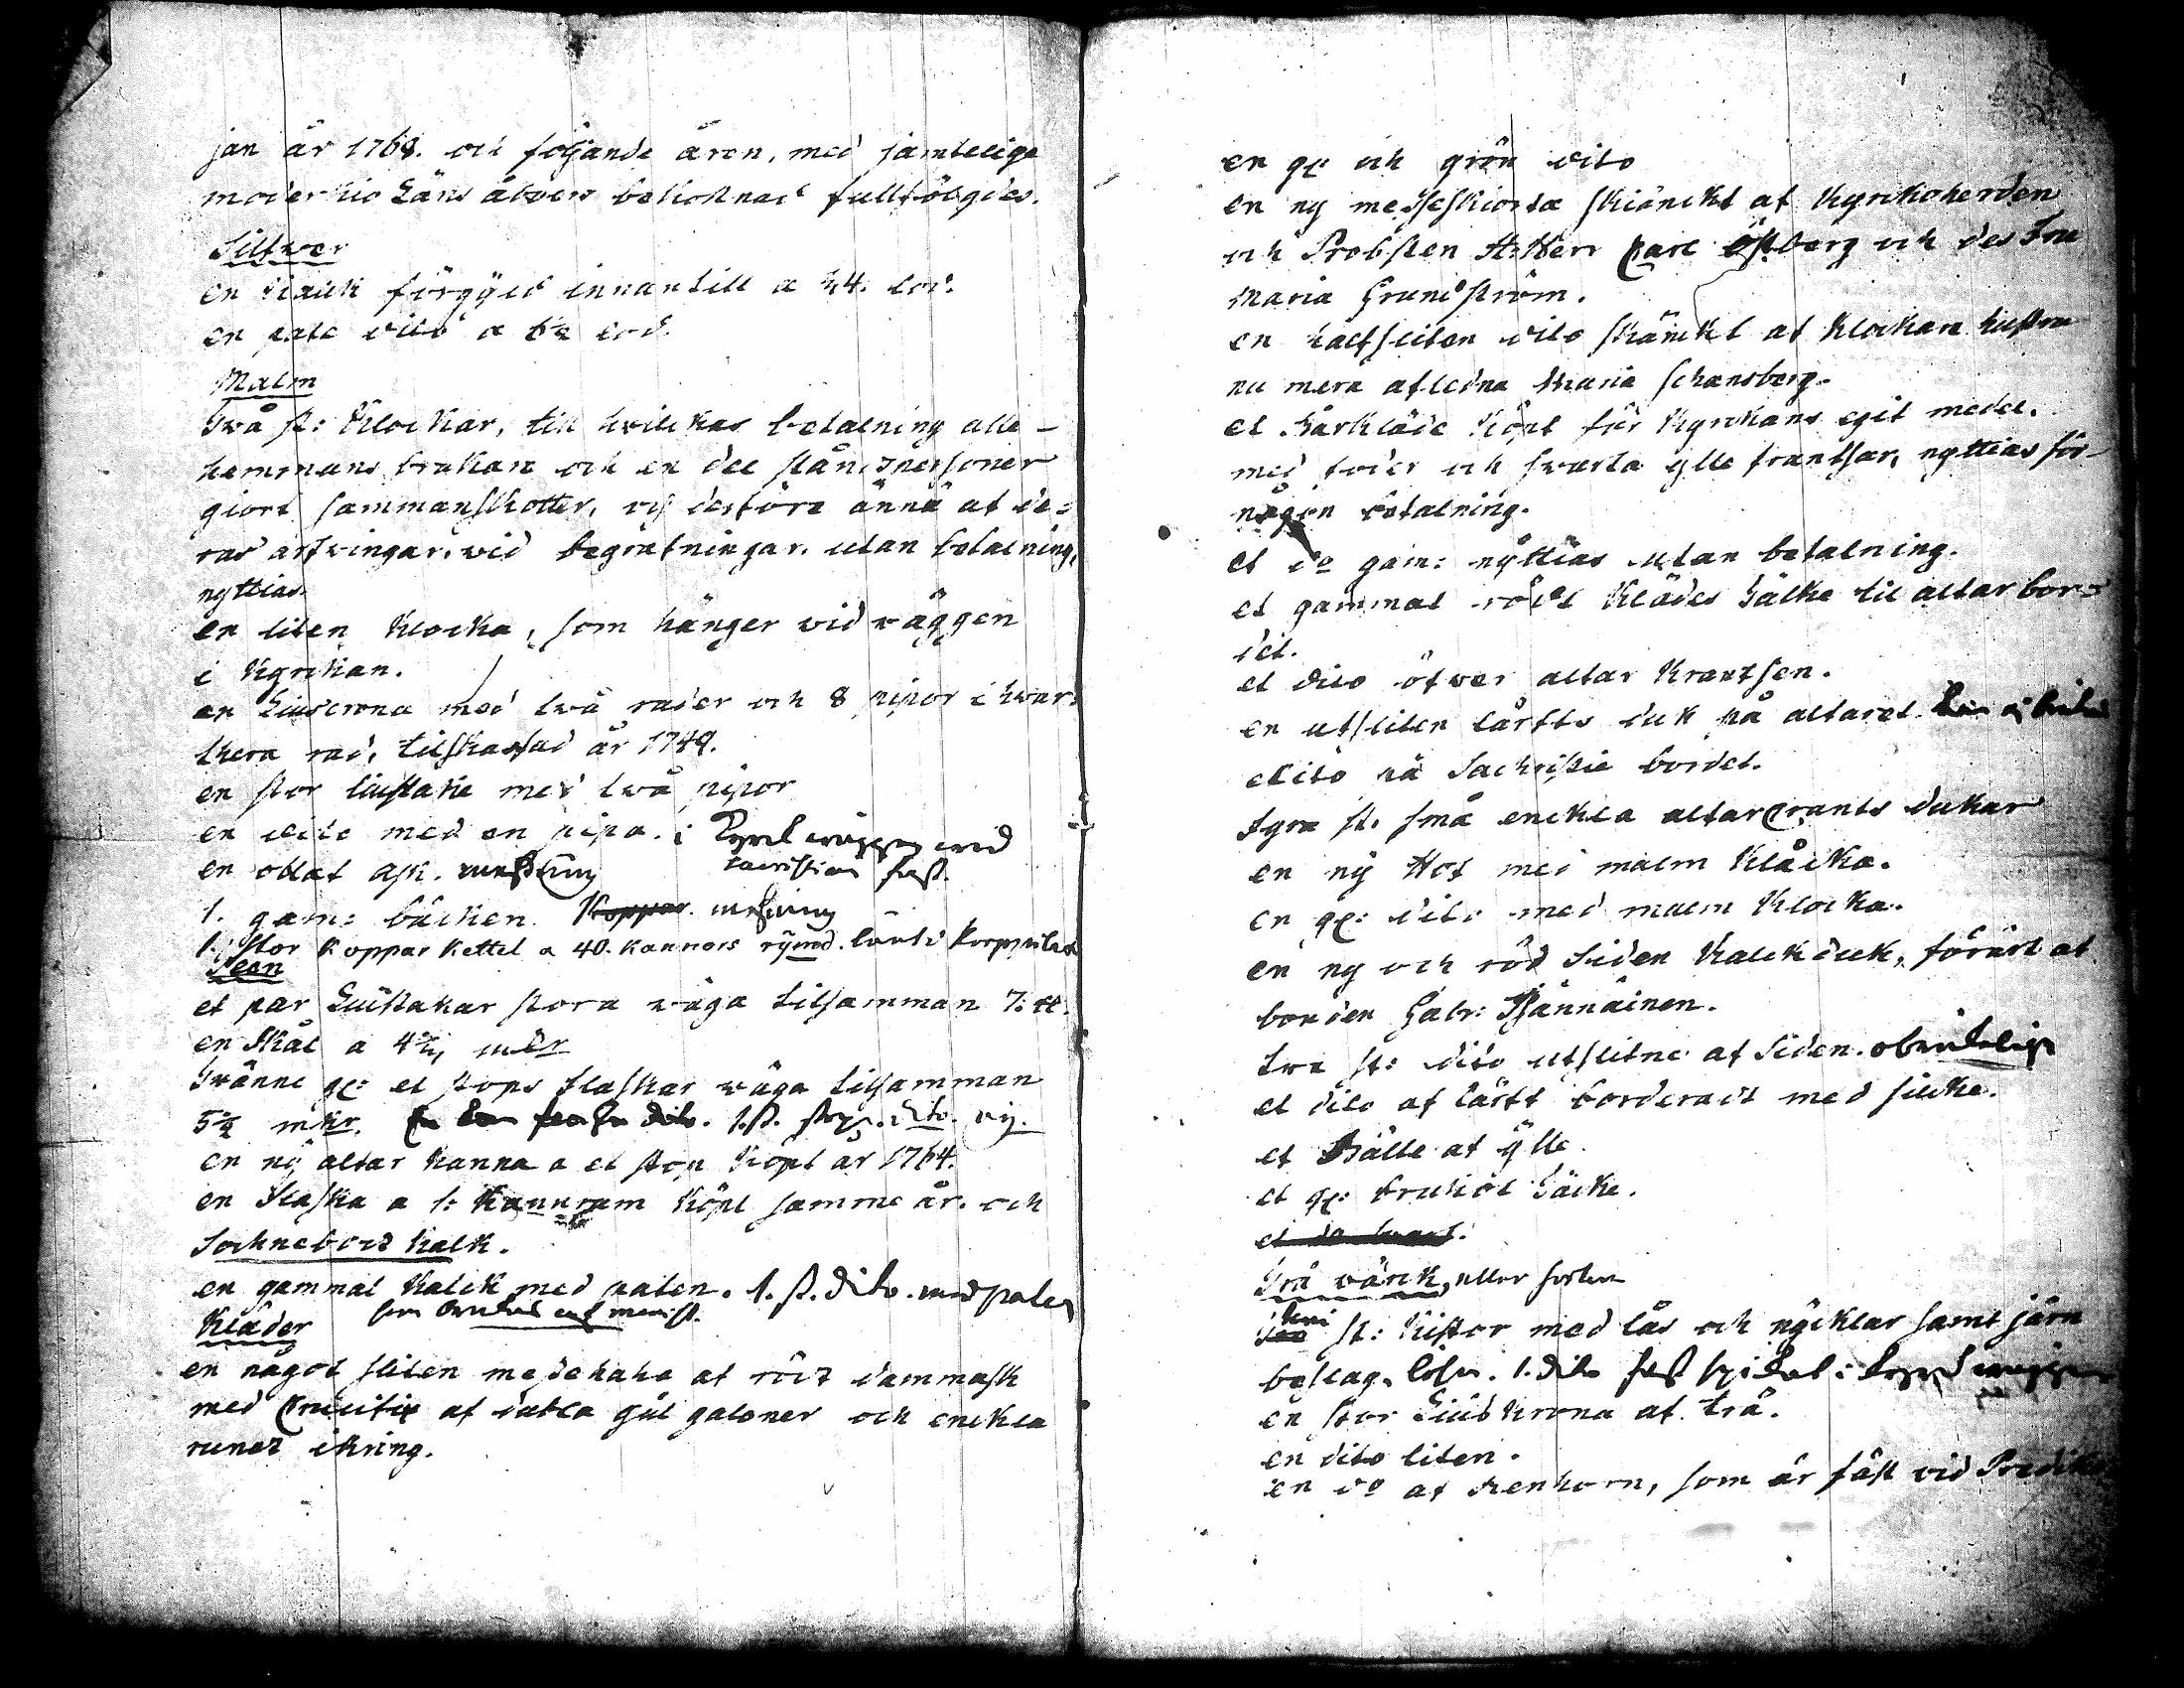 jan år 1768. och föijande åren, med samtelige
moderkiörkians åboers bekostnad fullfölgdes.
Silfwer
en kalck förgyld innantill a 24. lod.
en pate dito a 6½ lod.
Malm
Två st: klockar, till hvilckas betalning alla
hemmans brukare och en del ståndspersoner
giort sammanskotter, och desföre ännu af de=
ras arfvingar, vid begrafningar, utan betalning,
nyttias.
en liten klocka, som hänger vid väggen
i kyrckan.
en Liuscrona med två rader och 8 pipor i hwar=
thera rad, tilskaffad år 1749.
en stor liustake med två pipor
en dito med en pipa. i Kyrck wäggen wid
sacristian fast.
en oblat ask. 
1. gam: bäcken. Koppar. messing
1. Stor Koppar Kettel a 40. Kannors rÿmd.
Tenn
et par Liustakar stora väga tilsamman 7: ℔.
en Skål a 4½ mkr
Tvänne gl: et stops flaskor väga tilsamman
5½ mkr. 1. st. stops. dito. ny.
en ny altar kanna a et stop köpt år 1764.
en flaska a 1: Kannrum köpt samma år. och
Sochnebods kalk.
en gammal kalck med paten. 1. st. dito. med paten
som brukas
Kläder
en något sliten messehake af rödt dammask
med Crucifix af dubla gul galoner och enckla
rundt ikring.
en gl: och grön dito
en ny messeskiorta skiänckt af kyrckoherden
och Probsten H: Herr Carl Östberg och des Fru
Maria Grundström.
en halfsliten dito skänckt af klockare hustru
nu mera afledna Maria Schansberg.
et bårkläde köpt för kyrckans egit medel.
med foder och swarta ylle frantsar, nyttias för
någon betalning.
et do gam: nyttias utan betalning.
et gammal rödt klädes täcke til altar bor=
det.
et dito öfver altar krantsen.
en utsliten lärfts duk på altaret.
dito på Sachristie bordet.
fyra st. små enckla altar crants dukar
en ny Hof med malm klåcka.
en gl: dito med malm klocka.
en ny och röd Siden kalckduk, förärt af
bonden Gabr: Pfännäinen.
två st: dito utslitne af Siden. obrukelige
et dito af lärft borderadt med silcke.
et Bälte af ylle.
et gl: brukiöl täcke.
et do
Trä värck, eller
st: kistor med lås och nycklar samt järn
beslag. 1. dito fast spikat i kyrck wäggen
en stor Liuskrona af trä.
en dito liten.
en do af renhorn, som är fäst vid Prediko